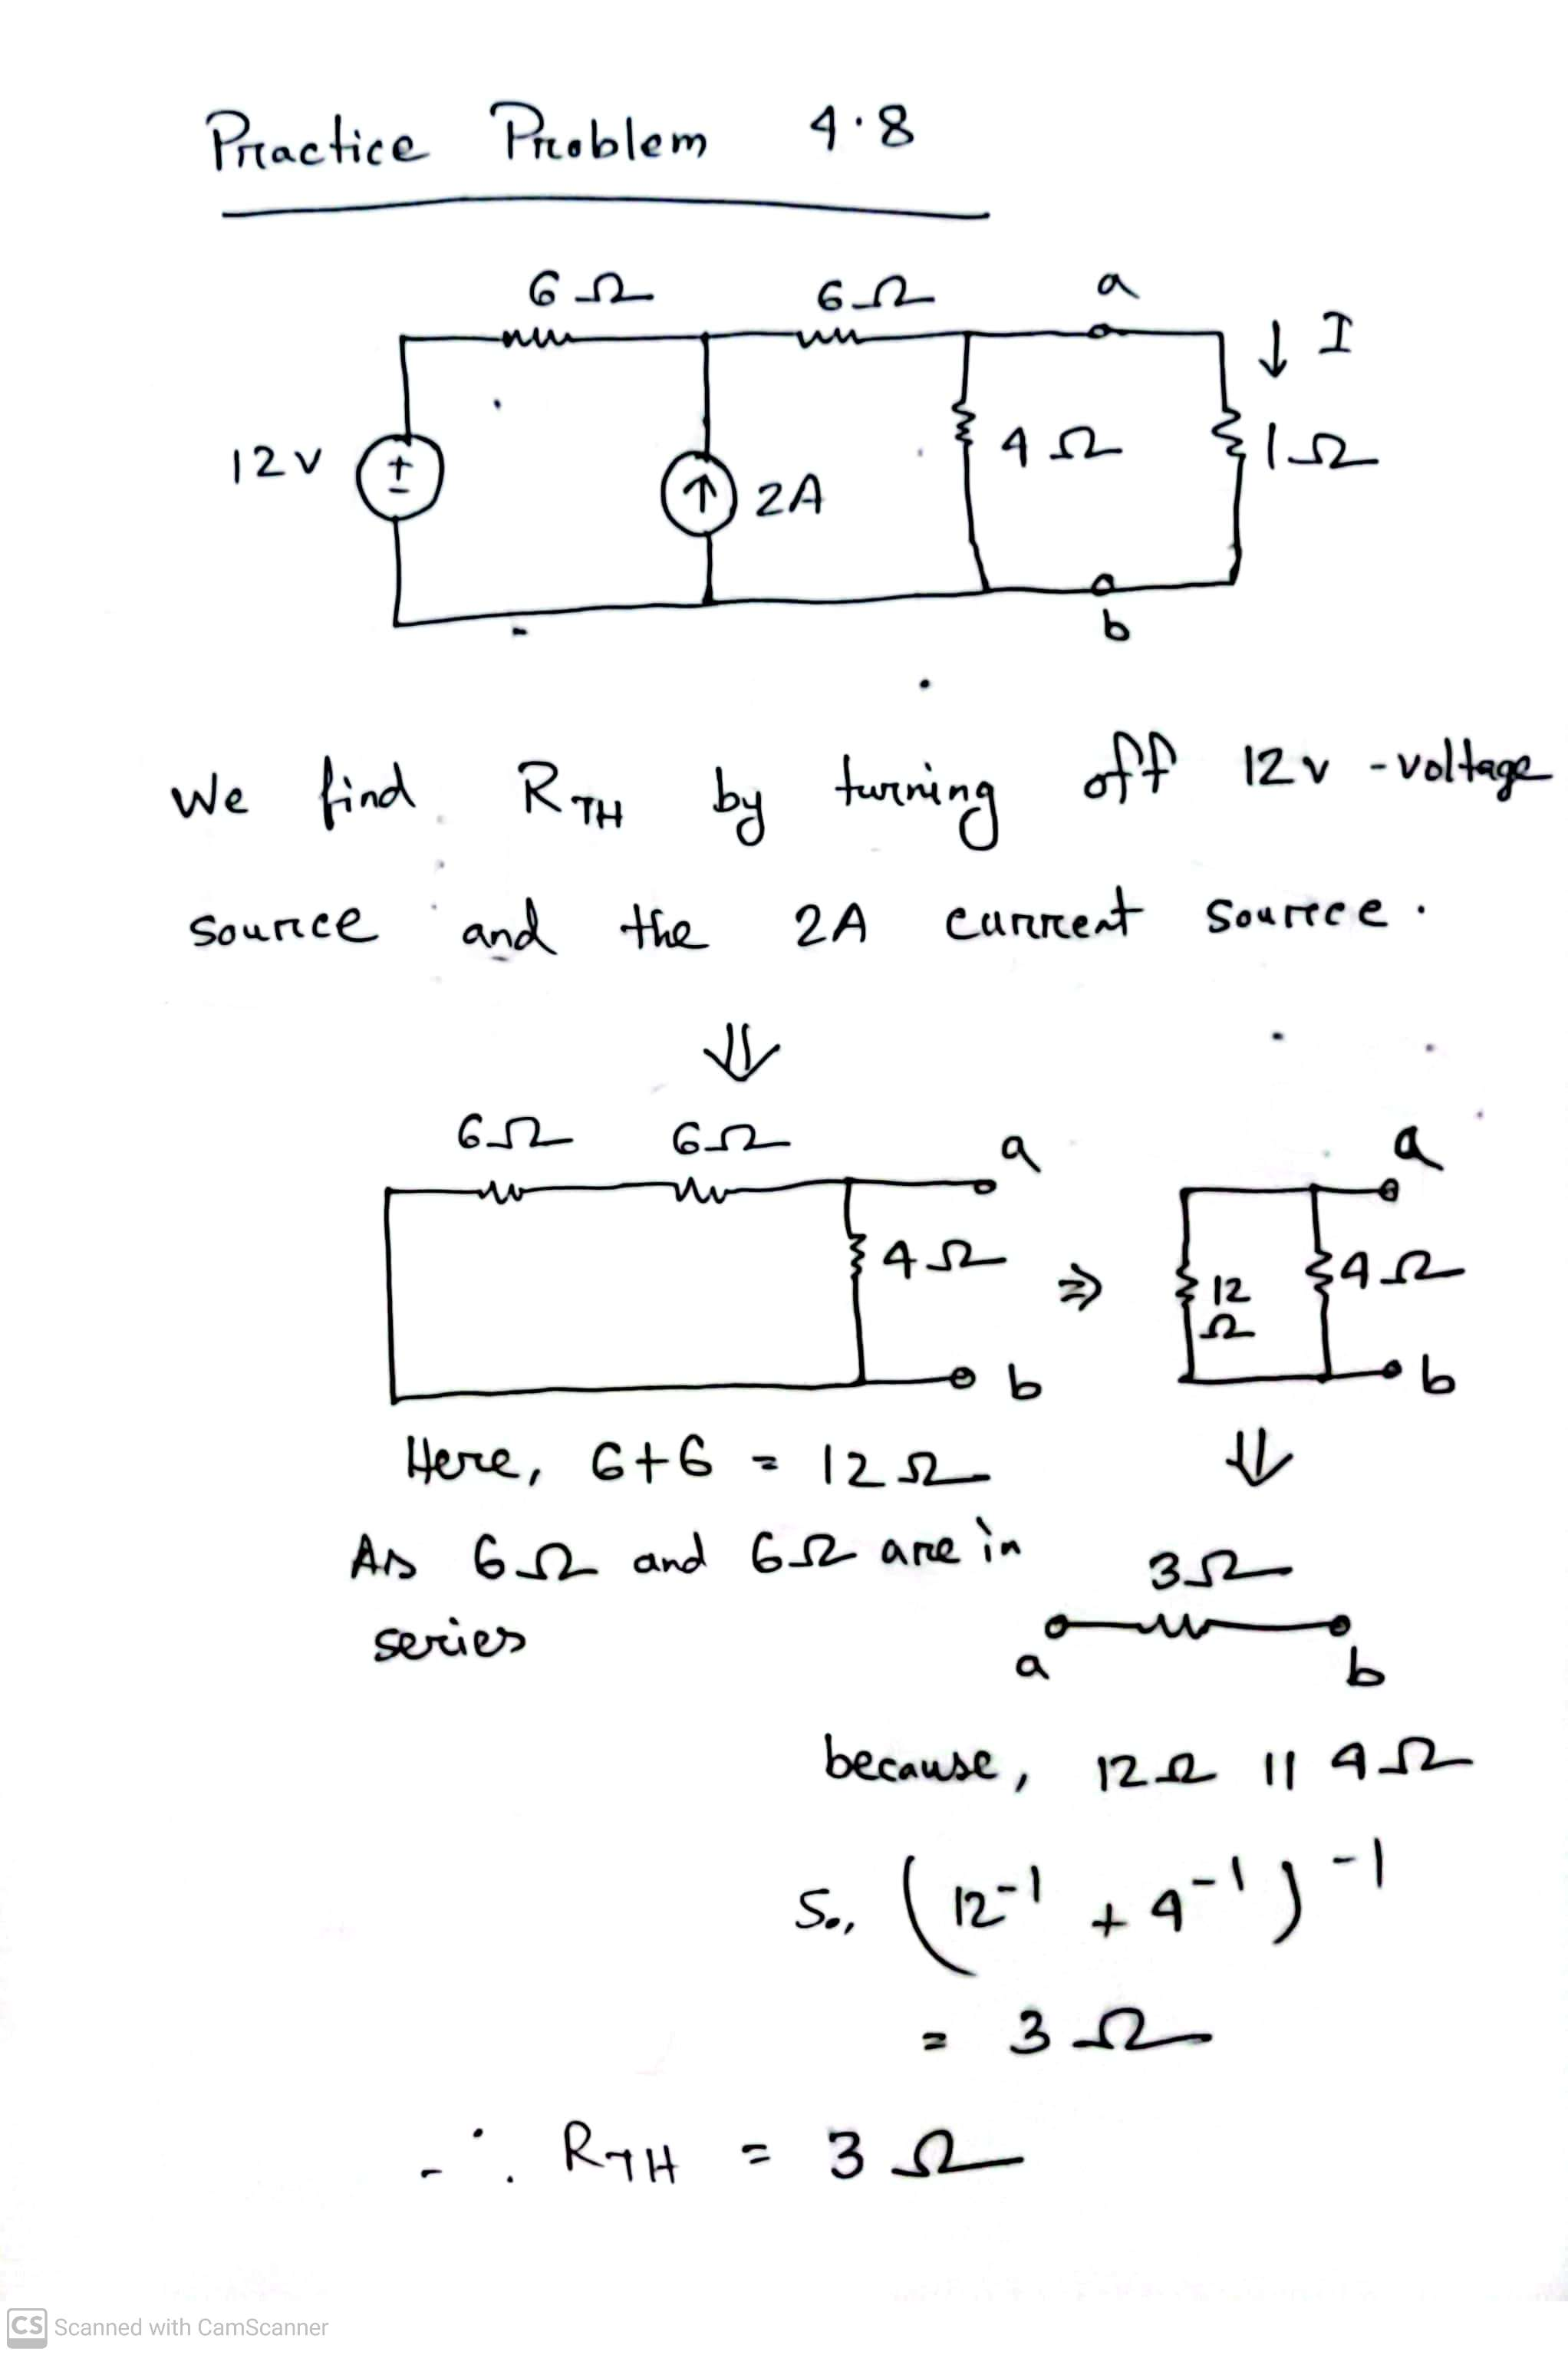 Practice Problem 4.8
6Ω 6Ω a
↓ I
12v + - ↑ 2A 4Ω 1Ω
b
We find RTH by turning off 12v - voltage
source and the 2A current source.
⇓
6Ω 6Ω a a
4Ω ⇒ 12Ω 4Ω
b b
Here, 6+6 = 12Ω ⇓
As 6Ω and 6Ω are in
series
3Ω
a b
because, 12Ω || 4Ω
So, (12⁻¹ + 4⁻¹)⁻¹
= 3Ω
∴ RTH = 3Ω
CS Scanned with CamScanner